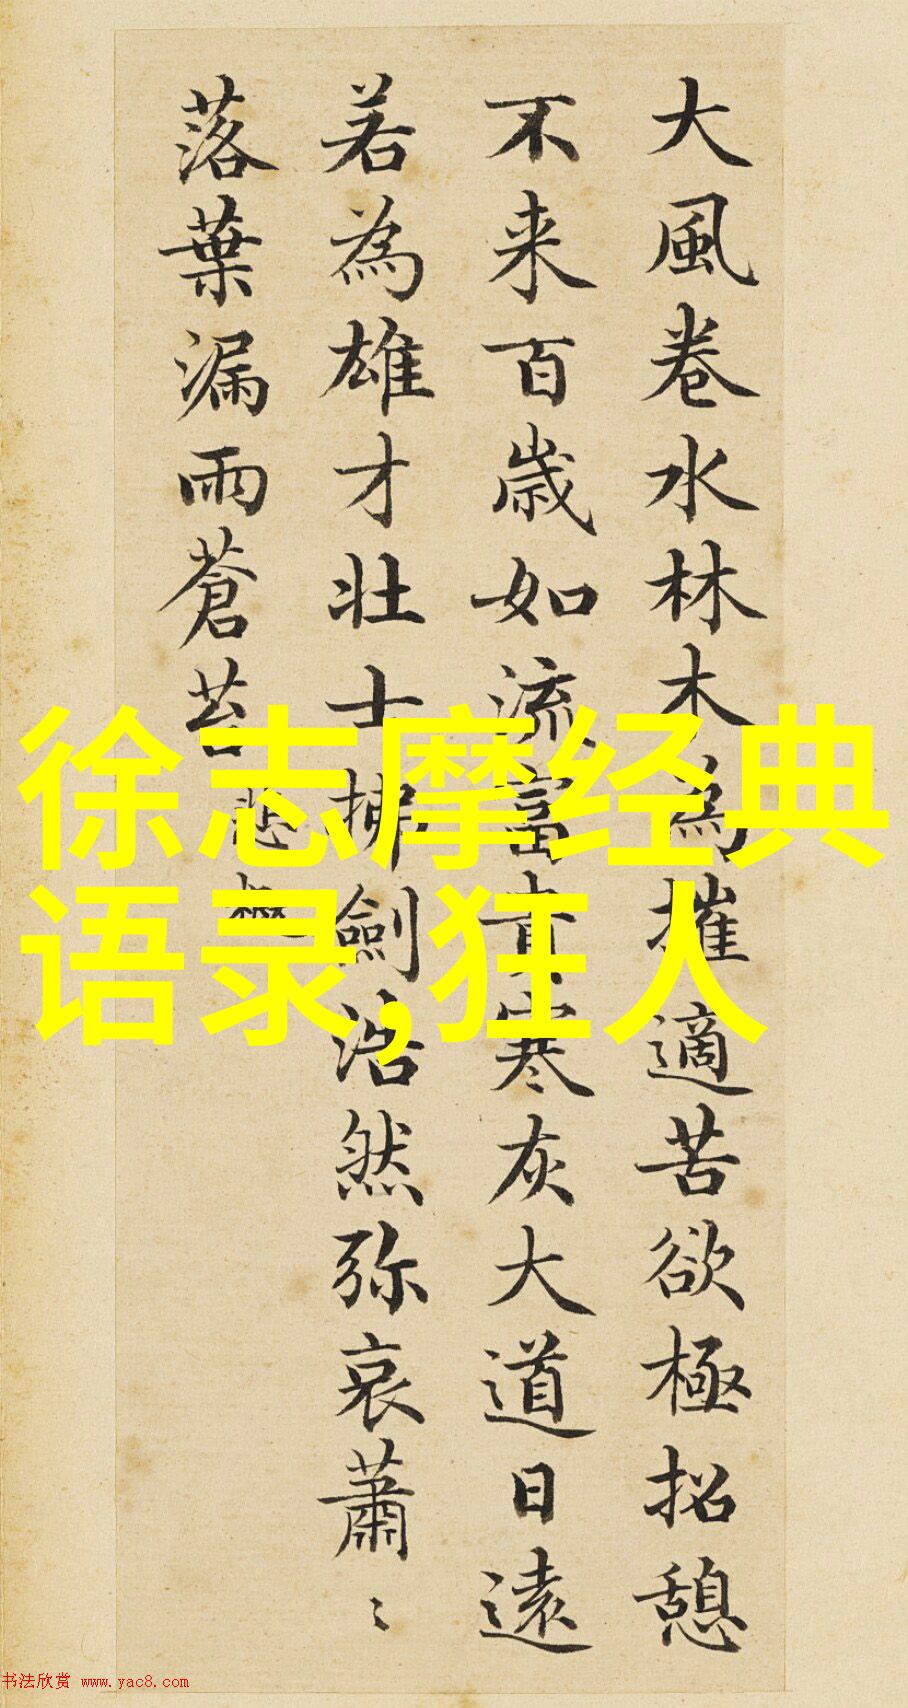 大風卷水林木為摧適苦欲極招憩
不来百歲如流富貴寒灰大道日遠
若為雄才壯士拂劍浩然弥哀蕭〻
落葉漏雨蒼苔
徐志摩经典
语录,狂人
书法欣赏 www.yac8.com